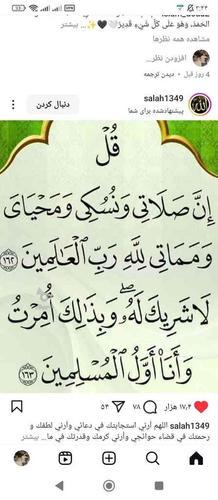 ۳:۴۴
الحَمدُ، وَهُوَ عَلَى كُلِّ شَيْءٍ قَدِيرٌ 🤍🖤✨... بیشتر
مشاهده همه نظرها
افزودن نظر...
4 روز پیش · دیدن ترجمه
salah1349
پیشنهادشده برای شما
دنبال کردن
قُلْ
إِنَّ صَلَاتِى وَنُسُكِى وَمَحْيَاىَ
وَمَمَاتِى لِلَّهِ رَبِّ ٱلْعَٰلَمِينَ ١٦٢
لَا شَرِيكَ لَهُۥ ۖ وَبِذَٰلِكَ أُمِرْتُ
وَأَنَا۠ أَوَّلُ ٱلْمُسْلِمِينَ ١٦٣
۱۷٫۴ هزار
۷۸
۵۴
salah1349 اللهم أرني استجابتك في دعائي وأرني لطفك و
رحمتك في قضاء حوائجي وأرني كرمك وقدرتك في ما... بیشتر